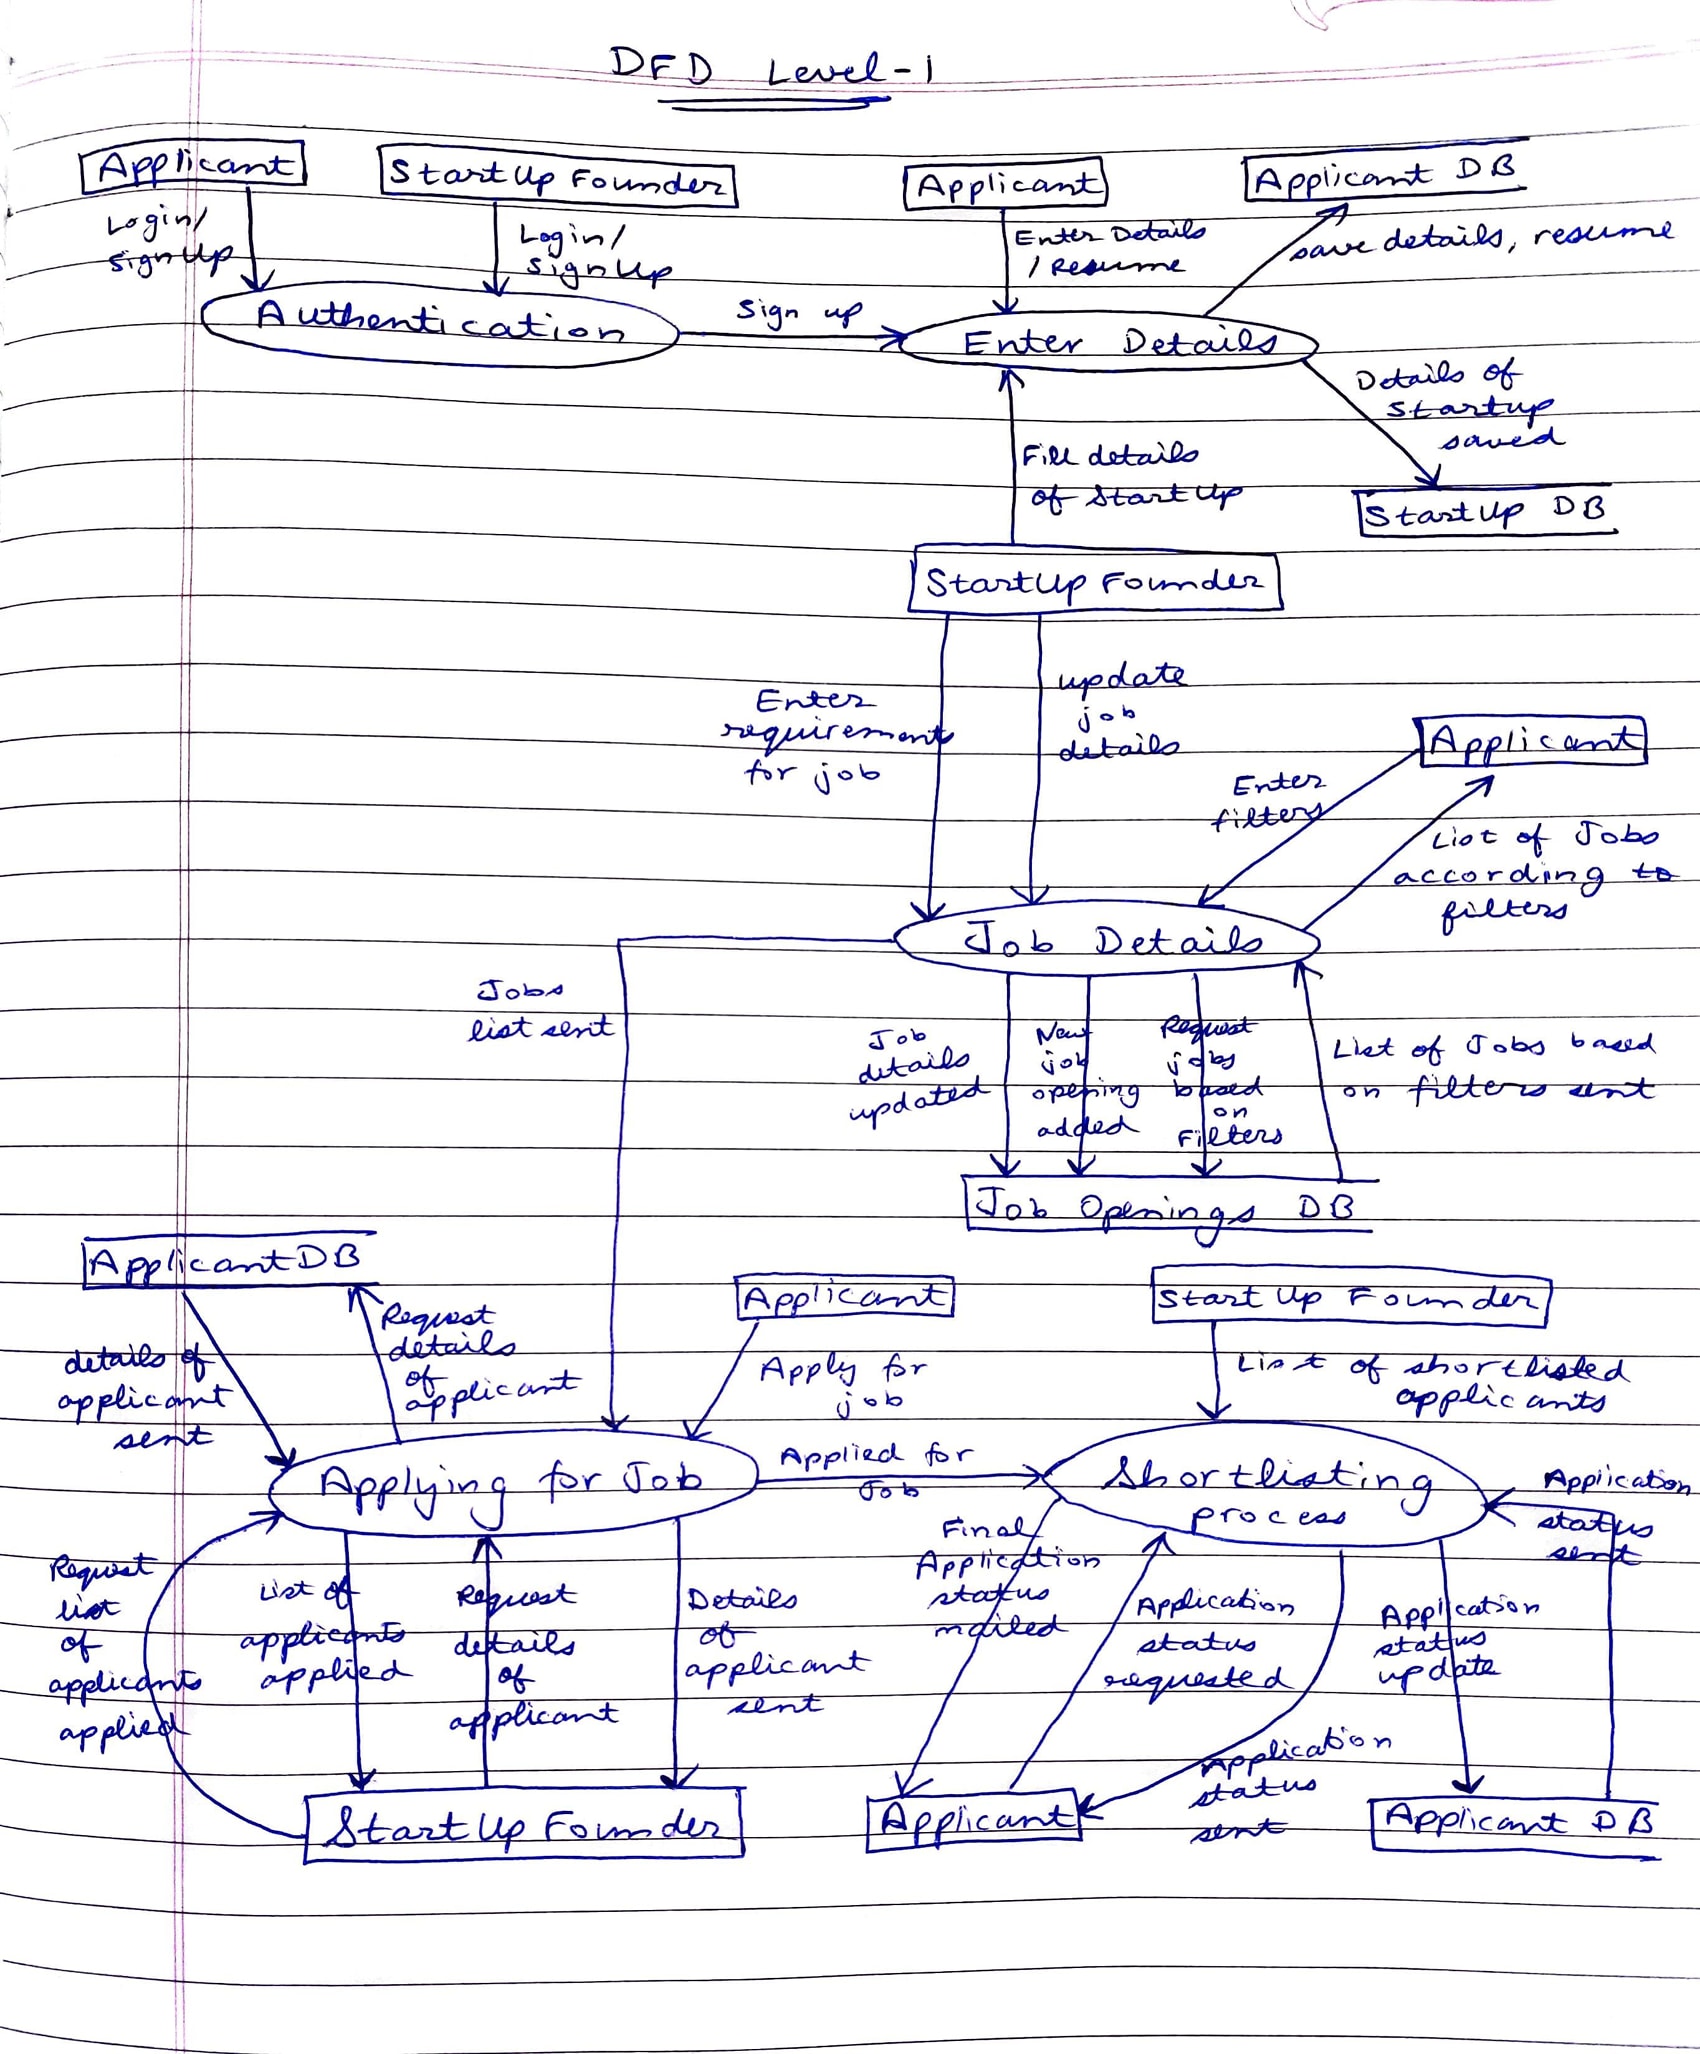 DFD Level-1
Applicant
StartUp Founder
Applicant
Applicant DB
Login/
signUp
Login/
signUp
Enter Details
/ Resume
save details, resume
Authentication
Sign up
Enter Details
Details of
startup
saved
Fill details
of StartUp
StartUp DB
StartUp Founder
Enter
requirements
for job
update
job
details
Applicant
Enter
filters
List of Jobs
according to
filters
Job Details
Jobs
list sent
Job
details
updated
New
job
opening
added
Request
jobs
based
on
Filters
List of Jobs based
on filters sent
Job Openings DB
Applicant DB
Applicant
StartUp Founder
details of
applicant
sent
Request
details
of
applicant
Apply for
job
List of shortlisted
applicants
Applying for Job
Applied for
Job
Shortlisting
process
Application
status
sent
Request
list
of
applicants
applied
List of
applicants
applied
Request
details
of
applicant
Details
of
applicant
sent
Final
Application
status
mailed
Application
status
requested
Application
status
update
Application
status
sent
StartUp Founder
Applicant
Applicant DB